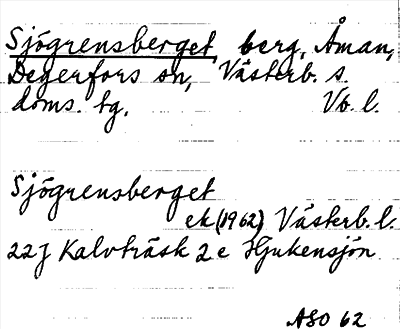 Sjögrensberget, berg, Åman,
Degerfors sn, Västerb. s.
doms. tg. Vb. l.
Sjögrensberget
ek (1962) Västerb. l.
22J Kalvträsk 2e Hjukensjön
ASO 62